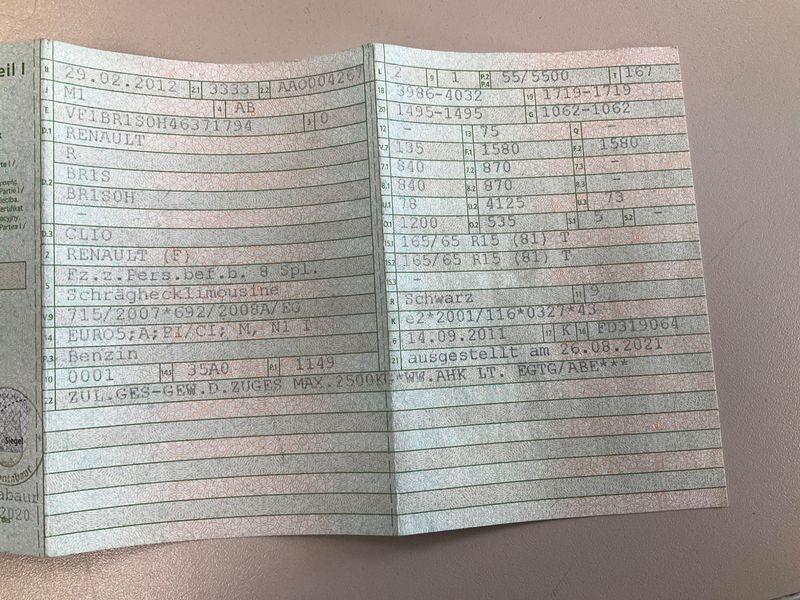 eil I
B 29.02.2012 2.1 3333 2.2 AAO004267
J M1 4 AB
E VF1BR1S0H46371794 3 0
D.1 RENAULT
R
D.2 BR1S
BR1S0H
-
D.3 CLIO
2 RENAULT (F)
5 Fz.z.Pers.bef.b. 8 Spl.
Schräghecklimousine
V.9 715/2007*692/2008A/EG
14 EURO5;A;PI/CI; M, N1 I
P.3 Benzin
10 0001 14.1 35A0 P.1 1149
22 ZUL.GES-GEW.D.ZUGES MAX.2500KG*WW.AHK LT. EGTG/ABE***
L 2 9 1 P.2 P.4 55/5500 T 167
18 3986-4032 19 1719-1719
20 1495-1495 G 1062-1062
12 - 13 75 Q -
V.7 135 F.1 1580 F.2 1580
7.1 840 7.2 870 7.3 -
8.1 840 8.2 870 8.3 -
U.1 78 U.2 4125 U.3 73
O.1 1200 O.2 535 S.1 5 S.2 -
15.1 165/65 R15 (81) T
15.2 165/65 R15 (81) T
15.3 -
R Schwarz 11 9
K e2*2001/116*0327*43
6 14.09.2011 17 K 16 FD319064
21 ausgestellt am 26.08.2021
Siegel
abaur
2020